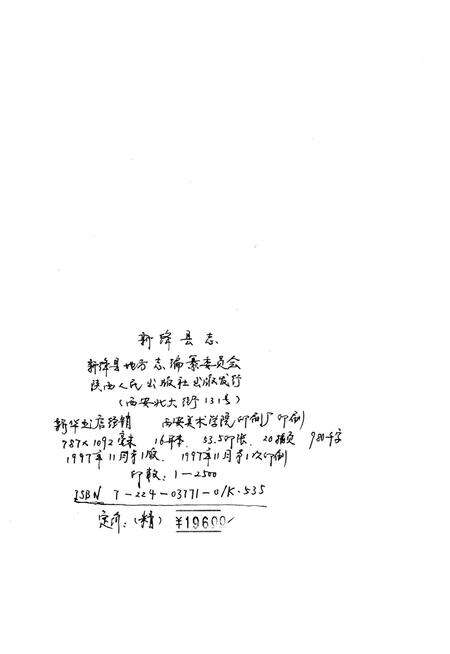 新绛县志
新绛县地方志编纂委员会
陕西人民出版社出版发行
(西安北大街131号)
新华书店经销 西安美术学院印刷厂印刷
787×1092毫米 16开本 53.5印张 20插页 980千字
1997年11月第1版 1997年11月第1次印刷
印数:1-2500
ISBN 7-224-03771-0/K·535
定价:(精) ¥19600